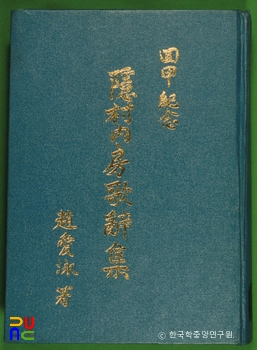 回甲紀念
隱村內房歌辭集
趙愛泳著
ⓒ 한국학중앙연구원